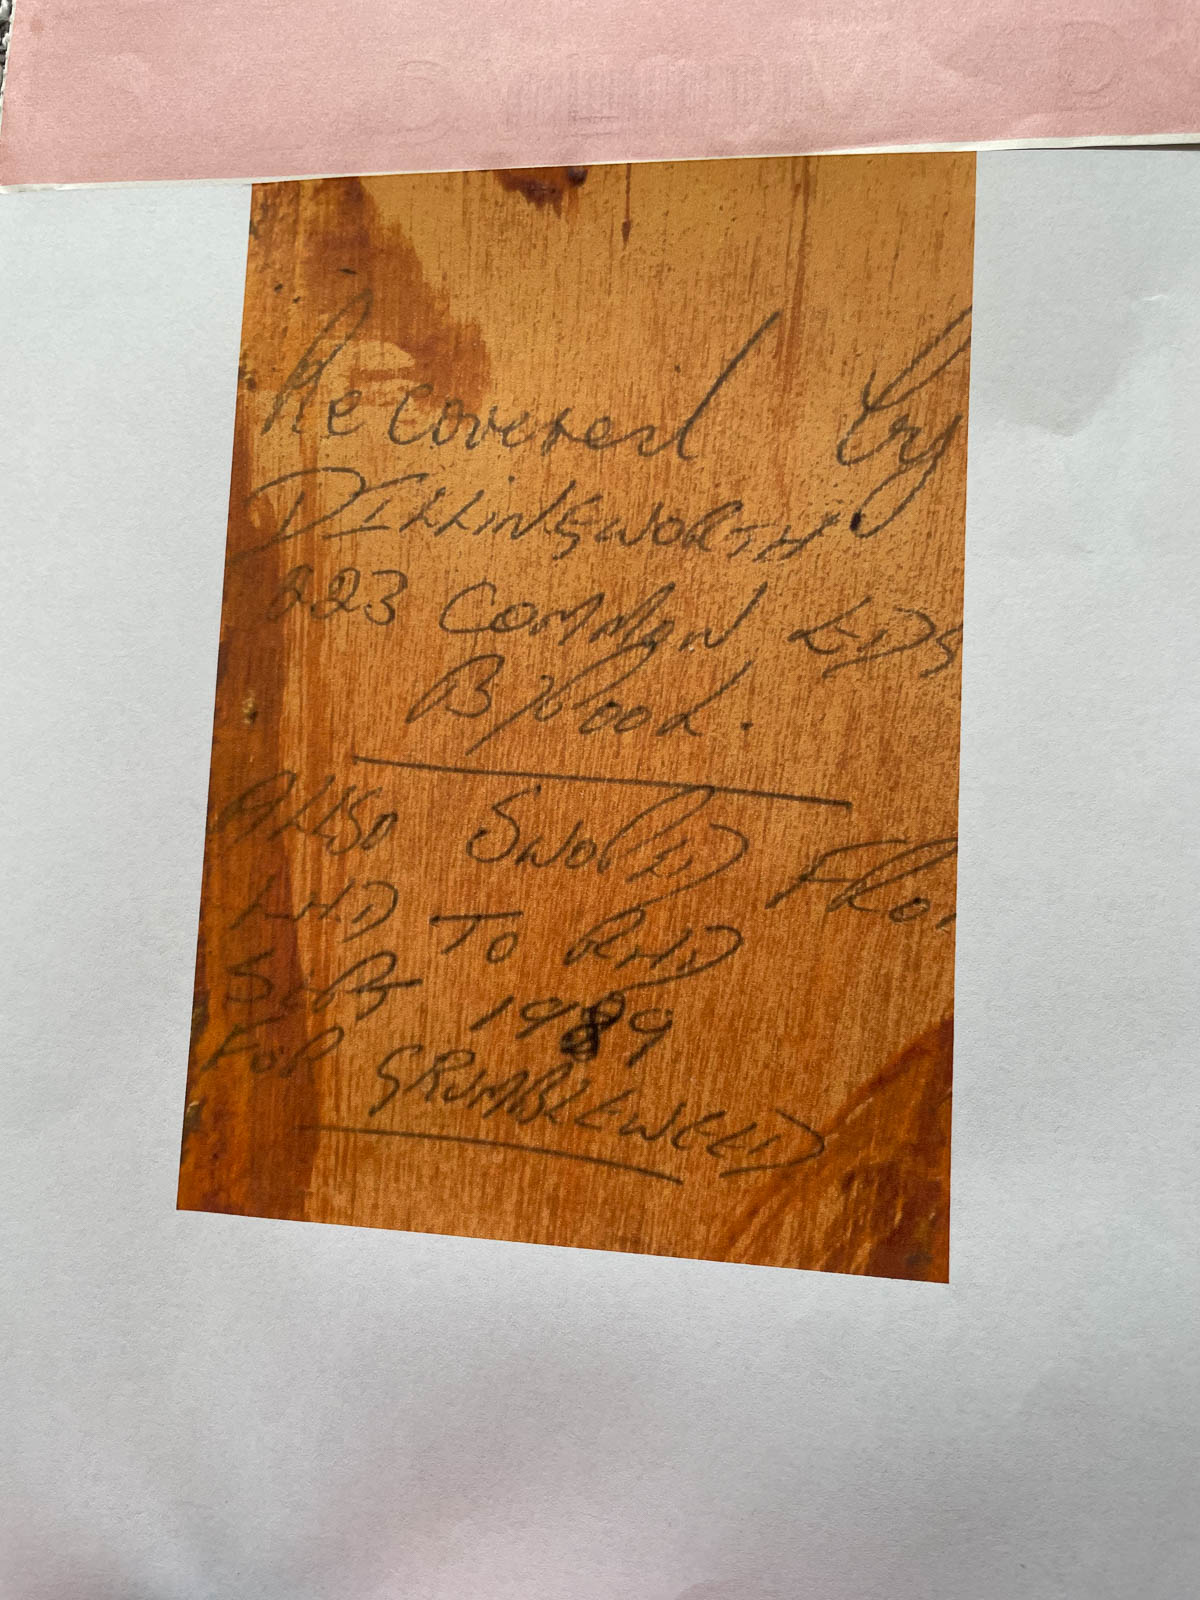 Recovered by
DILLINGWORTH
223 COMMON EDG
B/Pool.
ALLSO SWOPED FRO
LHD TO RHD
SEPT 1989
FOR GRUMBLEWEED